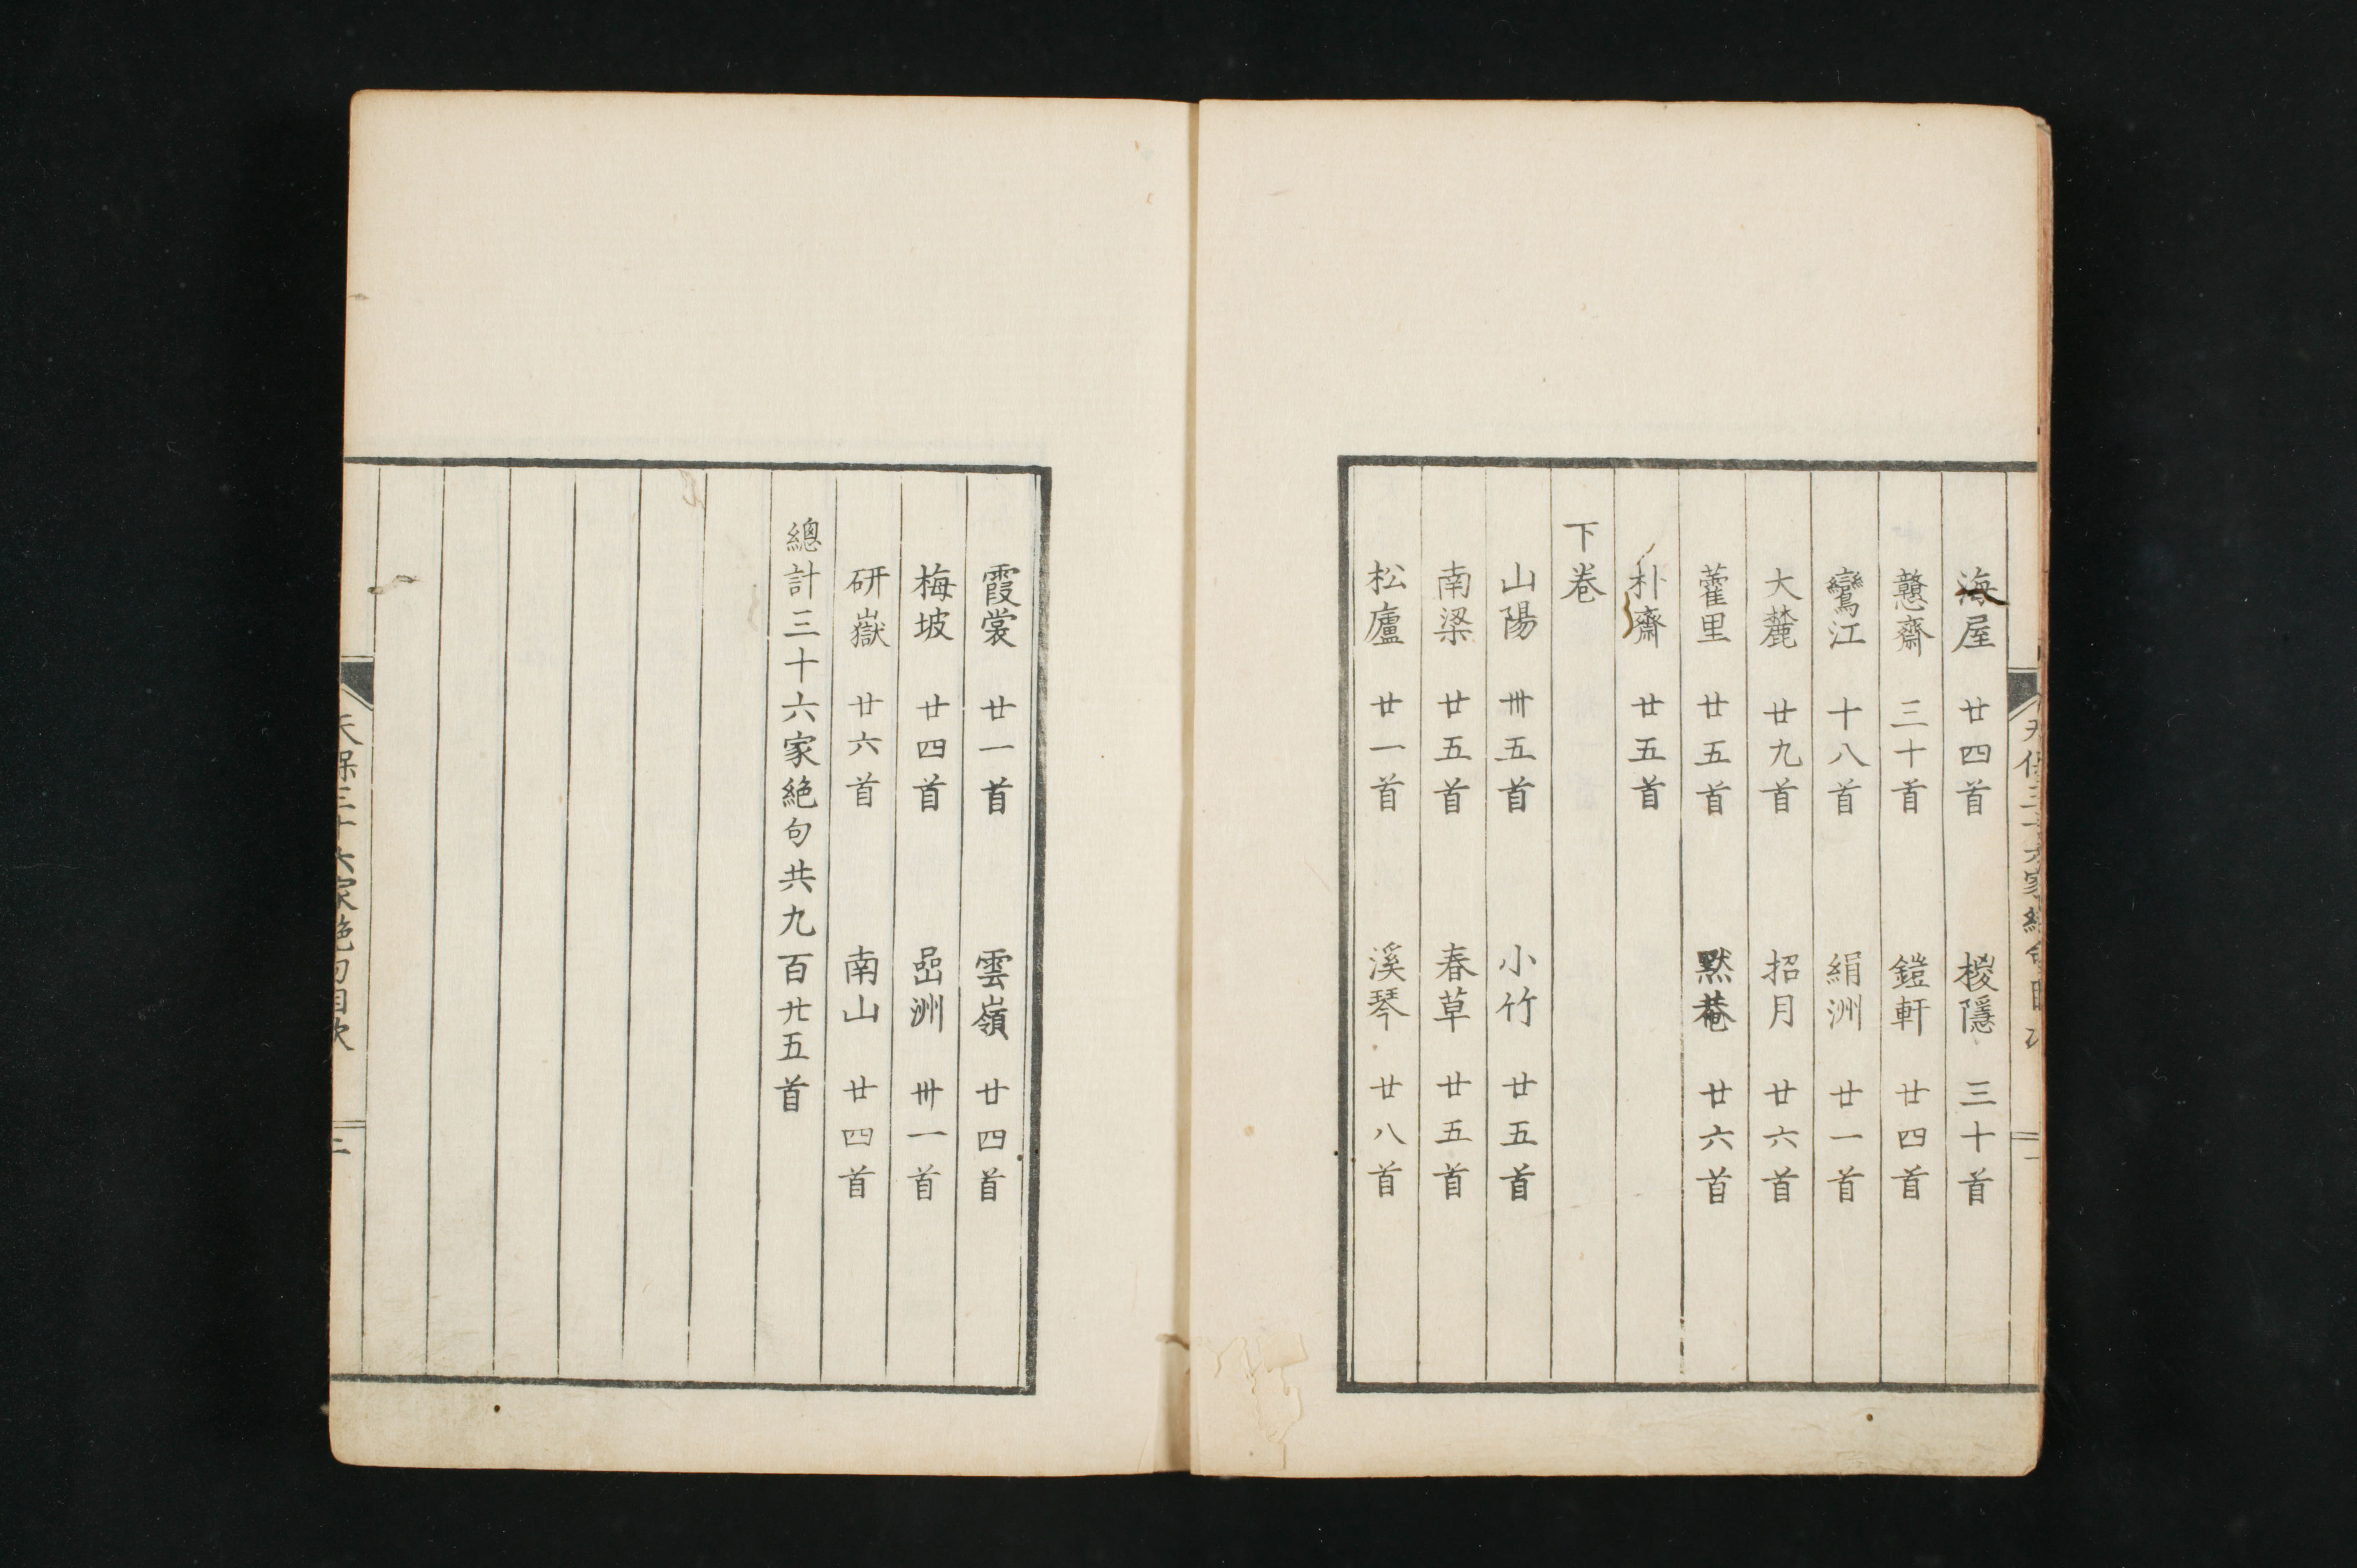 海屋 廿四首 椶隱 三十首
戇齋 三十首 鎧軒 廿四首
鸞江 十八首 絹洲 廿一首
大麓 廿九首 招月 廿六首
藿里 廿五首 默菴 廿六首
朴齋 廿五首
下卷
山陽 卅五首 小竹 廿五首
南梁 廿五首 春草 廿五首
松廬 廿一首 溪琴 廿八首
霞裳 廿一首 雲嶺 廿四首
梅坡 廿四首 嵒洲 卅一首
研嶽 廿六首 南山 廿四首
總計三十六家絶句共九百廿五首
天保三十六家絶句目次 二